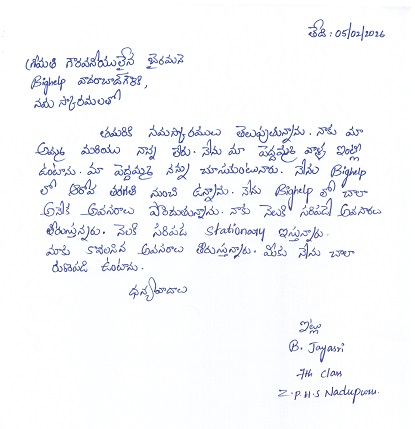 తేది : 05/02/2026
శ్రీమతి గౌరవనీయులైన
Bighelp
నమస్కారములతో
తమరికి నమస్కారములు తెలుపుతున్నాను. నాకు మా
అమ్మ మరియు నాన్న లేరు. నేను మా పెద్దమ్మ వాళ్ళ ఇంట్లో
ఉంటాను. మా పెద్దమ్మ నన్ను చూసుకుంటారు. నేను Bighelp
లో ఆరోవ తరగతి నుంచి ఉన్నాను. నేను Bighelp లో చాలా
అనేక అవసరాలు పొందుతున్నాను. నాకు నెలకి సరిపడే అవసరాలు
తీరుస్తున్నారు. నెలకి సరిపడ Stationary ఇస్తున్నారు.
మాకు కావలసిన అవసరాలు తీరుస్తున్నారు. మీకు నేను చాలా
రుణపడి ఉంటాను.
ధన్యవాదాలు
ఇట్లు
B. Jayasri
7th class
Z.P.H.S Nadupuru.